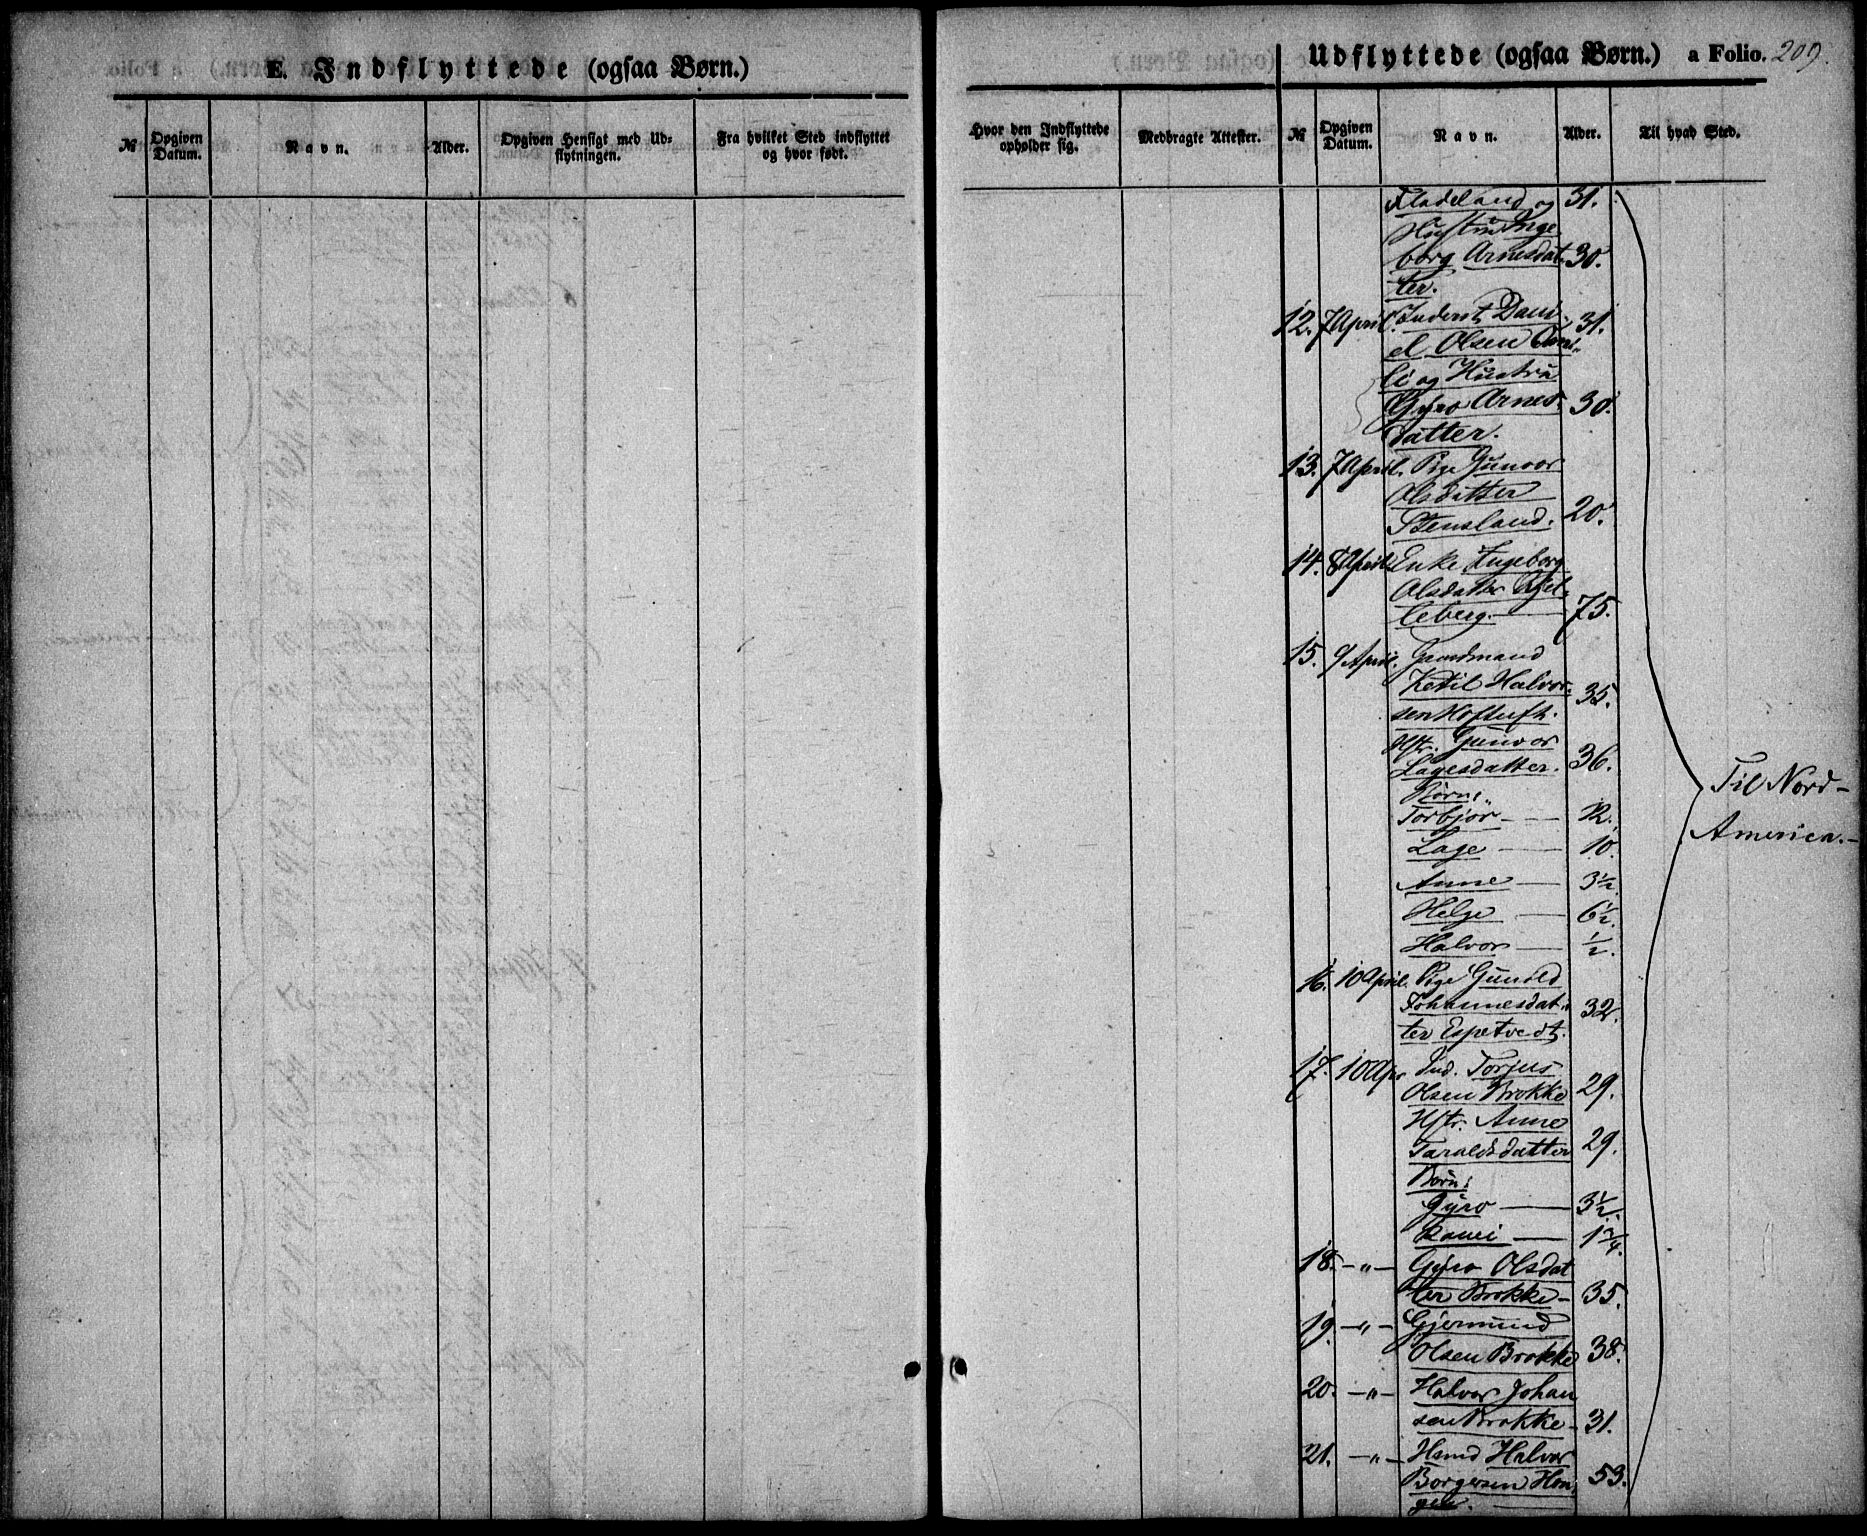 E. Indflyttede (ogsaa Børn.)
№
Opgiven Datum.
Navn.
Alder.
Opgiven Hensigt med Udflytningen.
Fra hvilket Sted indflyttet og hvor født.
Udflyttede (ogsaa Børn.) a Folio. 209.
Hvor den Indflyttede opholder sig.
Medbragte Attester.
№
Opgiven Datum.
Navn.
Alder.
Til hvad Sted.
Fladeland og 31.
Hustru Inge
borg Arnesdat 30.
ter.
12. 7 April. Inderst Dani 31.
el Olsen
li og Hustru
Gyro Arnes 30.
datter.
13. 7 April. Pige Gunvor
Olsdatter
Stensland. 20.
14. 8 April Enke Ingeborg
Olsdatter
leberg. 75.
15. 9 April. Gaardmand
Ketil Halvor 35.
sen Hoftuft.
Hstr. Gunvor
Lagesdatter. 36.
Børn:
Torbjør 12.
Lage 10.
Anne 3½
Helge 6½
Halvor ½.
16. 10 April. Pige Gunild
Johannesdat 32.
ter Espetvedt.
17. 10 Apr Ind. Torjus
Olsen Brokke 29.
Hstr. Anne
Taraldsdatter 29.
Børn:
Gyro 3½.
1¾.
18. —„— Gyro Olsdat
ter Brokke — 35.
19. —„— Gjermund
Olsen Brokke 38.
20. —„— Halvor Johan
sen Brokke — 31.
21. —„— Hsmd Halvor
Borgersen Hon 53.
gen.
Til Nord-
America.—